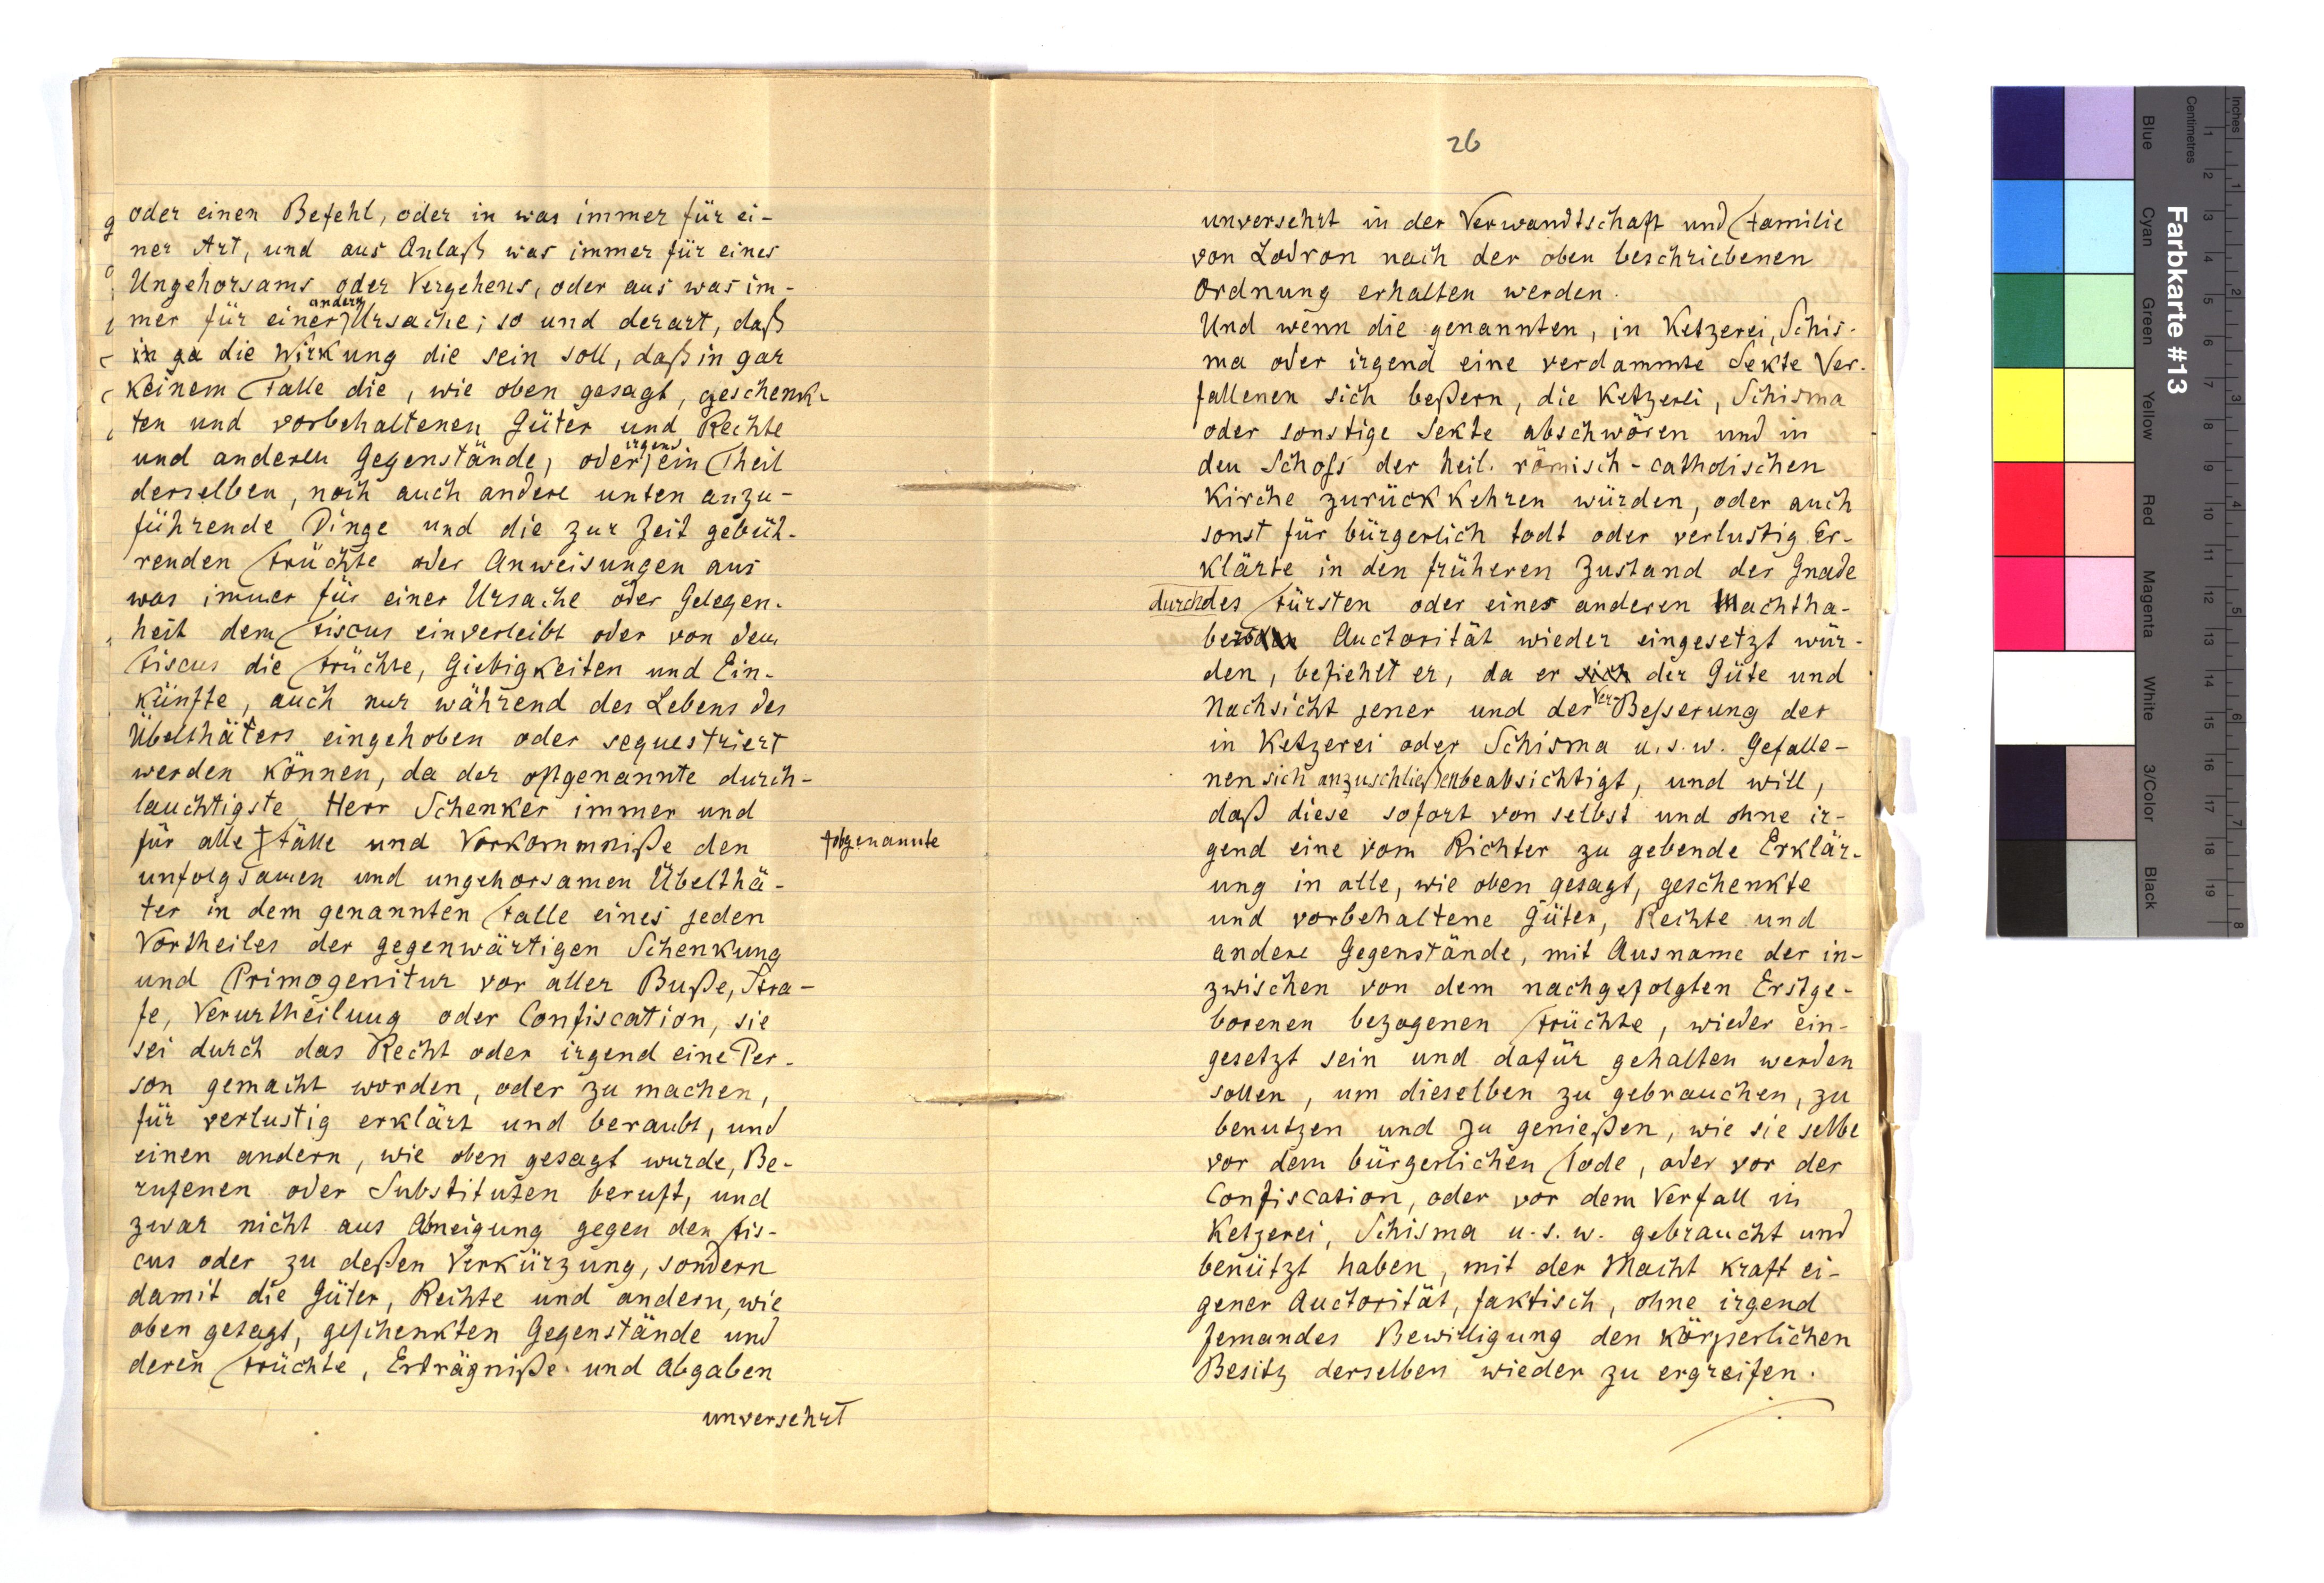 oder einen Befehl, oder in was immer für ei-
ner Art, und aus Anlaß was immer für eines
Ungehorsams oder Vergehens, oder aus was im-
andern
mer für einer Ursache; so und derart, daß
in ga die Wirkung die sein soll, daß in gar
keinem Falle die, wie oben gesagt, geschenk-
ten und vorbehaltenen Güter und Rechte
irgend
und anderen Gegenstände, oder ein Theil
derselben, noch auch andere unten anzu-
führende Dinge und die zur Zeit gebüh-
renden Früchte oder Anweisungen aus
was immer für einer Ursache oder Gelegen-
heit dem Fiscus einverleibt oder von dem
Fiscus die Früchte, Giebigkeiten und Ein-
künfte, auch nur während des Lebens des
Übelthäters eingehoben oder sequestriert
werden können, da der oftgenannte durch-
lauchtigste Herr Schenker immer und
für alle † Fälle und Vorkommniße den
† obgenannte
unfolgsamen und ungehorsamen Übelthä-
ter in dem genannten Falle eines jeden
Vortheiles der gegenwärtigen Schenkung
und Primogenitur vor aller Buße, Stra-
fe, Verurtheilung oder Confiscation, sie
sei durch das Recht oder irgend eine Per-
son gemacht worden, oder zu machen,
für verlustig erklärt und beraubt, und
einen andern, wie oben gesagt wurde, Be-
rufenen oder Substituten beruft, und
zwar nicht aus Abneigung gegen den Fis-
cus oder zu deßen Verkürzung, sondern
damit die Güter, Rechte und andern, wie
oben gesagt, geschenkten Gegenstände und
deren Früchte, Erträgniße und Abgaben
unversehrt
26
unversehrt in der Verwandtschaft und Familie
von Lodron nach der oben beschriebenen
Ordnung erhalten werden.
Und wenn die genannten, in Ketzerei, Schis-
ma oder irgend eine verdammte Sekte Ver-
fallenen sich beßern, die Ketzerei, Schisma
oder sonstige Sekte abschwören und in
den Schoß der heil. römisch-catholischen
Kirche zurückkehren würden, oder auch
sonst für bürgerlich todt oder verlustig Er-
klärte in den früheren Zustand der Gnade
durch des Fürsten oder eines anderen Machtha-
bers Auctorität wieder eingesetzt wür-
den, befiehlt er, da er sich der Güte und
Ver-
Nachsicht jener und der Beßerung der
in Ketzerei oder Schisma u.s.w. Gefalle-
nen sich anzuschließen beabsichtigt, und will,
daß diese sofort von selbst und ohne ir-
gend eine vom Richter zu gebende Erklär-
ung in alle, wie oben gesagt, geschenkte
und vorbehaltene Güter, Rechte und
andere Gegenstände, mit Ausname der in-
zwischen von dem nachgefolgten Erstge-
borenen bezogenen Früchte, wieder ein-
gesetzt sein und dafür gehalten werden
sollen, um dieselben zu gebrauchen, zu
benutzen und zu genießen, wie sie selbe
vor dem bürgerlichen Tode, oder vor der
Confiscation, oder vor dem Verfall in
Ketzerei, Schisma u.s.w. gebraucht und
benützt haben, mit der Macht kraft ei-
gener Auctorität, faktisch, ohne irgend
Jemandes Bewilligung den körperlichen
Besitz derselben wieder zu ergreifen.
Farbkarte #13
Blue
Cyan
Green
Yellow
Red
Magenta
White
3/Color
Black
Centimetres
Inches
1
2
3
4
5
6
7
8
9
10
11
12
13
14
15
16
17
18
19
1
2
3
4
5
6
7
8